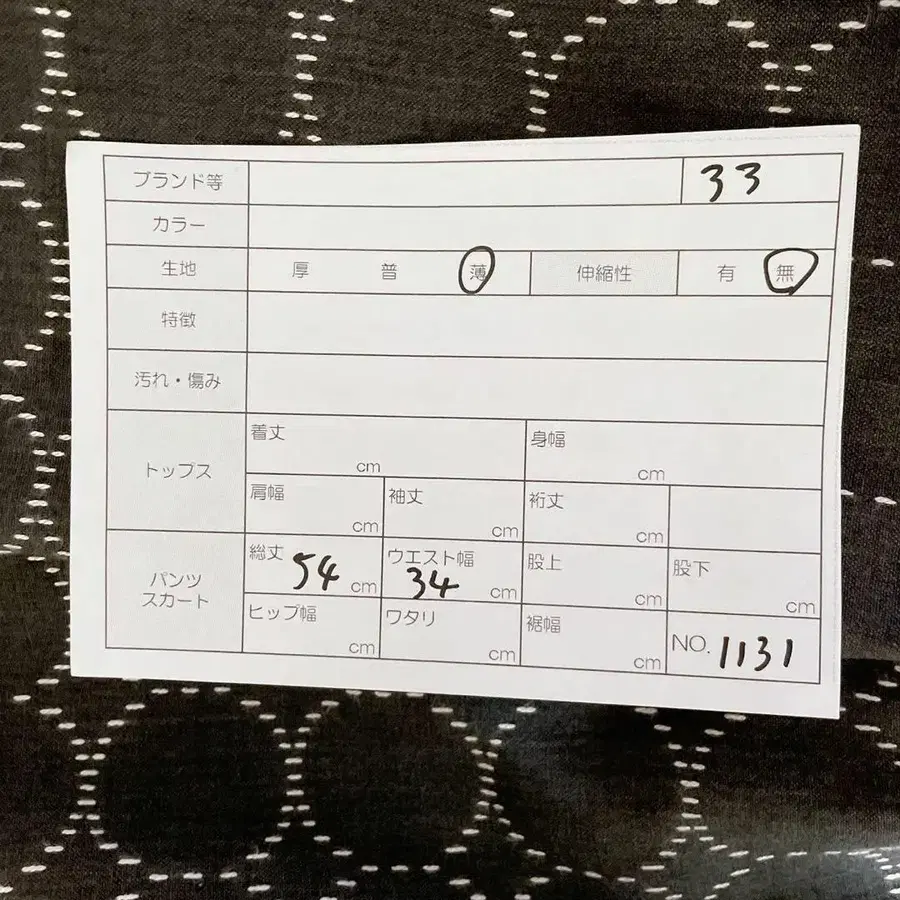 ブランド等 33
カラー
生地 厚 普 薄 伸縮性 有 無
特徴
汚れ・傷み
トップス
着丈 cm 身幅 cm
肩幅 cm 袖丈 cm 裄丈 cm
パンツ
スカート
総丈 54 cm ウエスト幅 34 cm 股上 cm 股下 cm
ヒップ幅 cm ワタリ cm 裾幅 cm NO. 1131